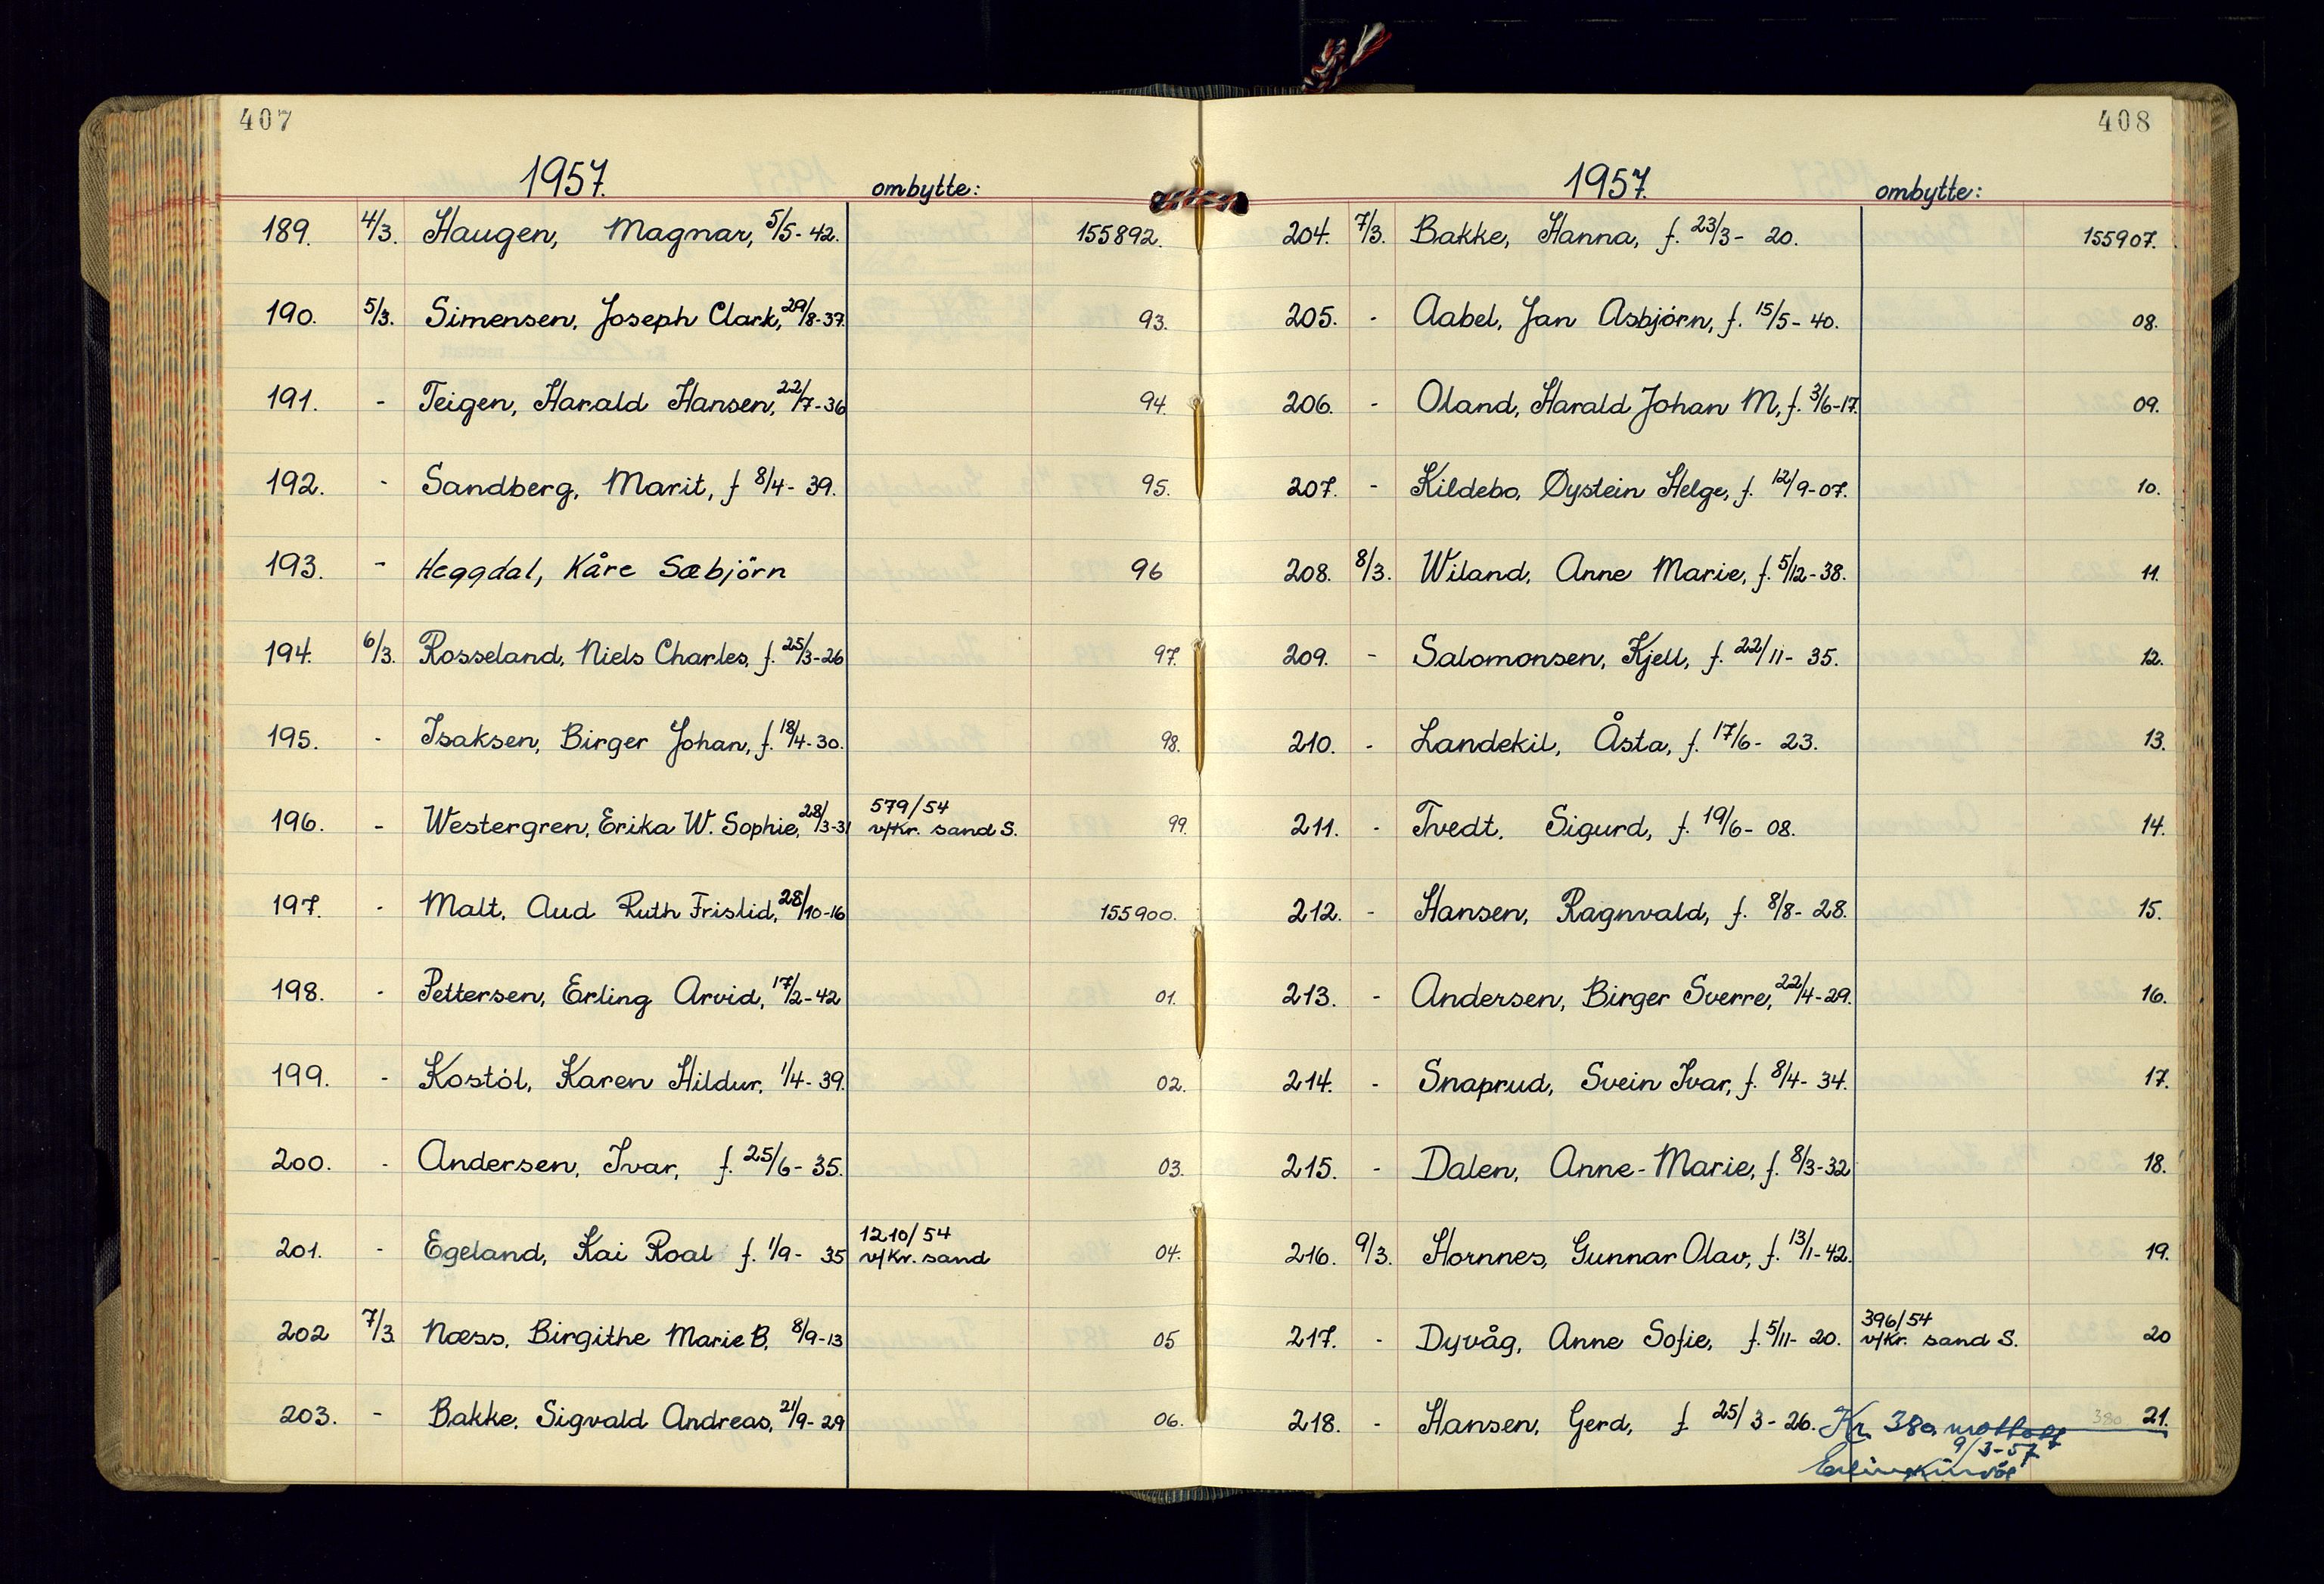 407
1957. ombytte:
189. 4/3. Haugen, Magnar, 5/5-42. 155892.
190. 5/3. Simensen, Joseph Clark, 29/8-37. 93.
191. - Teigen, Harald Hansen, 22/7-36 94.
192. - Sandberg, Marit, f 8/4-39. 95.
193. - Heggdal, Kåre Sæbjörn 96
194. 6/3. Rosseland, Niels Charles, f. 25/3-26 97.
195. - Isaksen, Birger Johan, f. 18/4-30. 98.
196. - Westergren, Erika W. Sophie, 28/3-31 579/54 v/Kr. sand S. 99.
197. - Malt, Aud Ruth Frislid, 28/10-16 155900.
198. - Pettersen, Erling Arvid, 17/2-42 01.
199. - Kostól, Karen Hildur, 1/4-39. 02.
200. - Andersen, Ivar, f. 25/6-35. 03.
201. - Egeland, Kai Roal f. 1/9-35 1210/54 v/Kr. sand 04.
202 7/3 Næss, Birgithe Marie B, 8/9-13 05
203. - Bakke, Sigvald Andreas, 21/9-29 06.
408
1957. ombytte:
204. 7/3. Bakke, Hanna, f. 23/3-20. 155907.
205. - Aabel, Jan Asbjórn, f. 15/5-40. 08.
206. - Oland, Harald Johan M, f. 3/6-17. 09.
207. - Kildebo, Øystein Helge, f. 12/9-07. 10.
208. 8/3. Wiland, Anne Marie, f. 5/12-38. 11.
209. - Salomonsen, Kjell, f. 22/11-35. 12.
210. - Landekil, Åsta, f. 17/6-23. 13.
211. - Tvedt, Sigurd, f. 19/6-08. 14.
212. - Hansen, Ragnvald, f. 8/8-28. 15.
213. - Andersen, Birger Sverre, 22/4-29. 16.
214. - Snaprud, Svein Ivar, f. 8/4-34. 17.
215. - Dalen, Anne-Marie, f. 8/3-32 18.
216. 9/3. Hornnes, Gunnar Olav, f. 13/1-42. 19.
217. - Dyvåg, Anne Sofie, f. 5/11-20. 396/54 v/Kr. sand S. 20
218. - Hansen, Gerd, f 25/3-26. Kr. 380 mottatt 380 21.
9/3-57